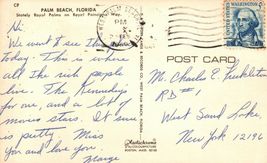 CP
PALM BEACH, FLORIDA
Stately Royal Palms on Royal Palm Way.
Hi,
We went to see this
today. This is where
all the rich people
live. The Kennedys
for one, and a lot of
movies stars. It sure
is pretty. Miss
You and love you
Marge
PM
POST CARD
Mr. Charles E.
RD #1
West Sand Lake,
New York 12196
WASHINGTON